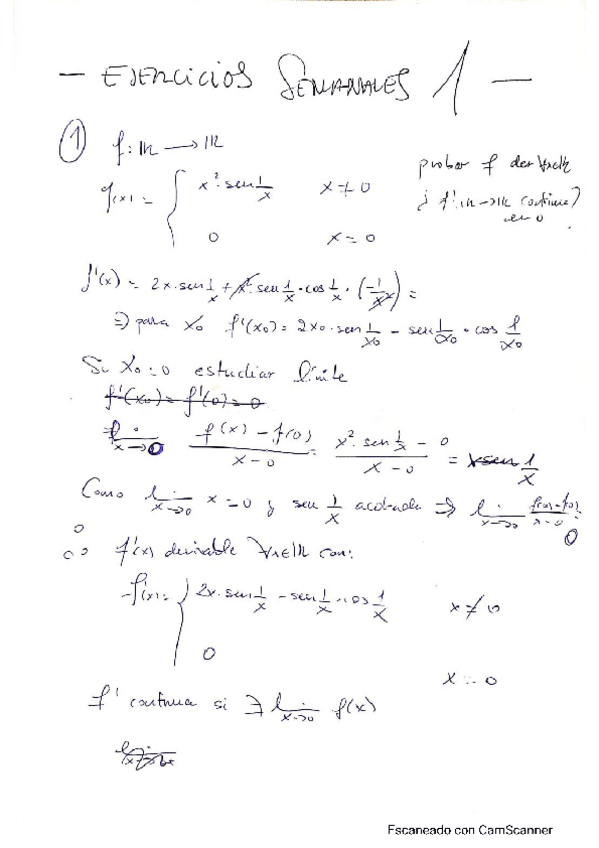 — EJERCICIOS SEMANALES 1 —
① f: ℝ → ℝ
probar f der ∀x∈ℝ
f(x) = { x²·sen 1/x x ≠ 0
¿ f': ℝ → ℝ continua? en 0
0 x = 0
f'(x) = 2x·sen 1/x + x²·sen 1/x · cos 1/x · (-1/x²) =
⇒ para x₀ f'(x₀) = 2x₀·sen 1/x₀ - sen 1/x₀ · cos 1/x₀
Si x₀ = 0 estudiar límite
f'(x₀) = f'(0) = 0
lim x→0 f(x) - f(0) / x - 0 = x²·sen 1/x - 0 / x - 0 = x sen 1/x
Como lim x→0 x = 0 y sen 1/x acotada ⇒ lim x→0 f(x)-f(0) / x-0 = 0
∴ f'(x) derivable ∀x∈ℝ con:
f'(x) = { 2x·sen 1/x - sen 1/x · cos 1/x x ≠ 0
0 x = 0
f' continua si ∃ lim x→0 f(x)
Escaneado con CamScanner